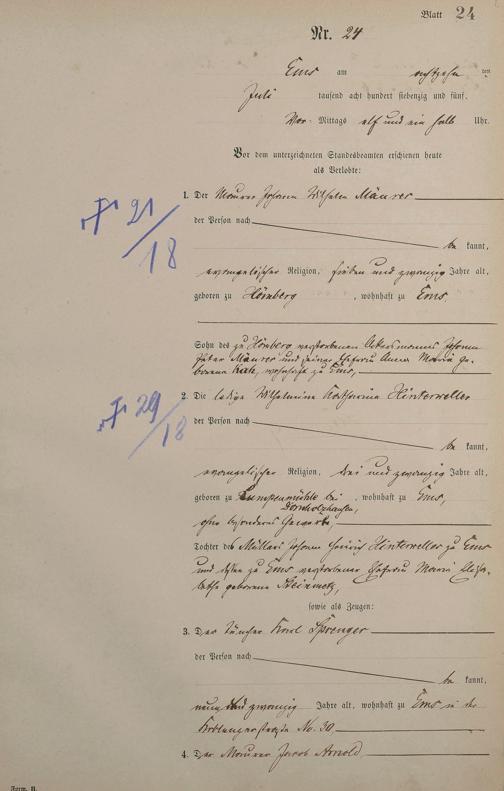 Blatt 24
Nr. 24
Ems am achtzehn ten
Juli tausend acht hundert siebenzig und fünf.
Vor-Mittags elf und ein halb Uhr.
Vor dem unterzeichneten Standesbeamten erschienen heute
als Verlobte:
1. Der Maurer Johann Wilhelm Mäurer
der Person nach
be kannt,
evangelischer Religion, sieben und zwanzig Jahre alt,
geboren zu Hömberg, wohnhaft zu Ems
Sohn des zu Hömberg verstorbenen Ackersmanns Johann
Peter Mäurer und seiner Ehefrau Anna Maria ge-
borene wohnhaft zu Ems,
2. Die ledige Wilhelmine Katharina Hinterweller
der Person nach
be kannt,
evangelischer Religion, drei und zwanzig Jahre alt,
geboren zu Lumpenmühle bei
Dornholzhausen, wohnhaft zu Ems,
ohne besonderes Gewerbe,
Tochter des Müllers Johann Heinrich Hinterweller zu Ems
und dessen zu Ems verstorbener Ehefrau Maria Elisa-
betha geborene Steinmetz,
sowie als Zeugen:
3. Der Tüncher Karl Sprenger
der Person nach
be kannt,
neun und zwanzig Jahre alt, wohnhaft zu Ems in der
No. 30
4. Der Maurer Jacob Arnold
21/18
29/18
Form. B.